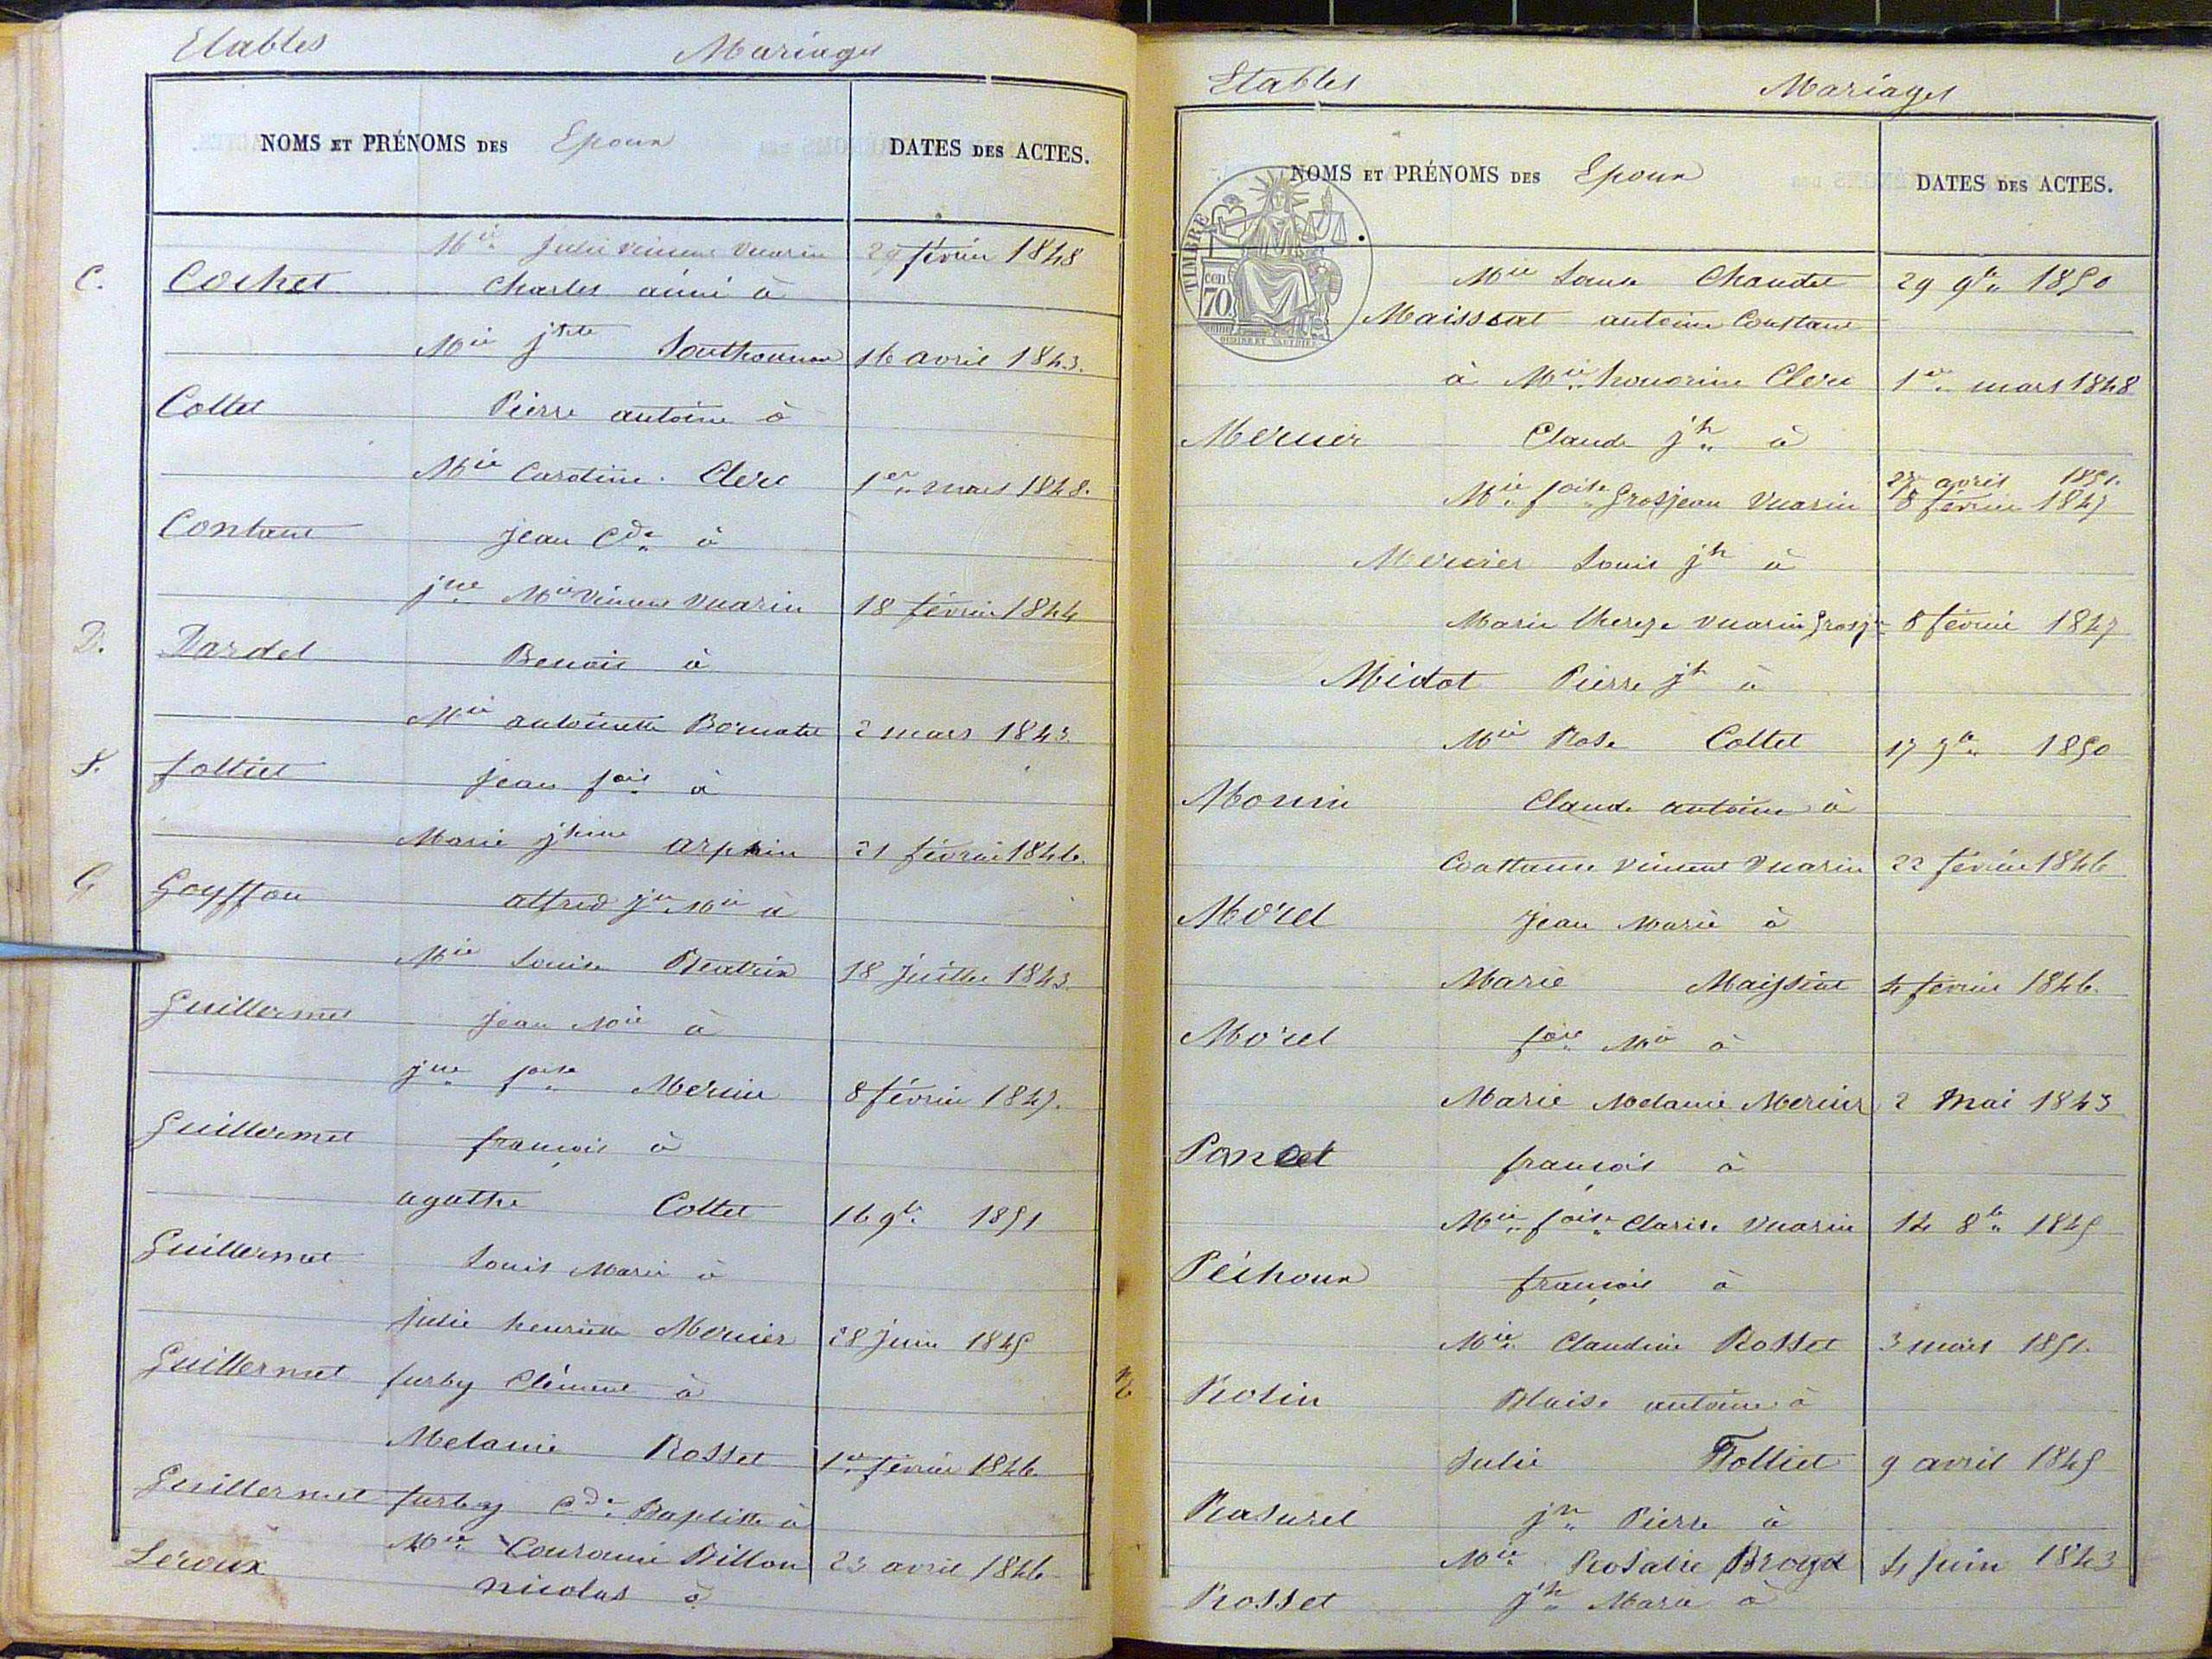 Etables Mariages
NOMS ET PRÉNOMS DES Epoux DATES DES ACTES.
Mie Julie Vincent Vuarin 29 février 1848
C. Cochet Charles aimé à
Mie jtte Southonnax 16 avril 1843.
Collet Pierre antoine à
Mie Caroline Clerc 1er mars 1848.
Contant jean Cde à
jne Mie Vincent Vuarin 18 février 1844
D. Dardel Benoit à
Mie antoinette Bornatet 2 mars 1843.
f. folliet jean fois à
Marie jhine arpin 21 février 1846.
G Goyffon alfred jn Mie à
Mie Louise Beatrix 18 juillet 1843.
Guillermet Jean Mie à
jne foise Mercier 8 février 1847.
Guillermet françois à
agathe Collet 16 9bre 1851
Guillermet Louis Marie à
julie henriette Mercier 28 juin 1845
Guillermet furby Clément à
Melanie Rosset 1er février 1846.
Guillermet furby Cde Baptiste à
Mie Couronné Billon 23 avril 1846
Léroux nicolas à
Etables Mariages
NOMS ET PRÉNOMS DES Epoux DATES DES ACTES.
TIMBRE
70
Mie Louise Chaudet 29 9bre 1850
Maissiat antoine Constant
à Mie honorine Clerc 1er mars 1848
Mercier Claude jh à
27 avril 1851.
Mie foise Grosjean Vuarin 8 février 1847
Mercier Louis jh à
Marie thereze Vuarin Grosjn 8 février 1847
Midot Pierre jh à
Mie Rose Collet 17 9bre 1850
Monin Claude antoine à
Constance Vincent Vuarin 22 février 1846
Morel Jean Marie à
Marie Maissiat 4 février 1846.
Morel fois Mie à
Marie Melanie Mercier 2 Mai 1843
Poncet françois à
Mie foise Clarise Vuarin 14 8bre 1845
Péchoux françois à
Mie Claudine Rosset 3 mars 1851.
R Rolin Blaise antoine à
Julie Folliet 9 avril 1845
Rasurel jn Pierre à
Mie Rosalie Broyd 4 juin 1843
Rosset jh Marie à